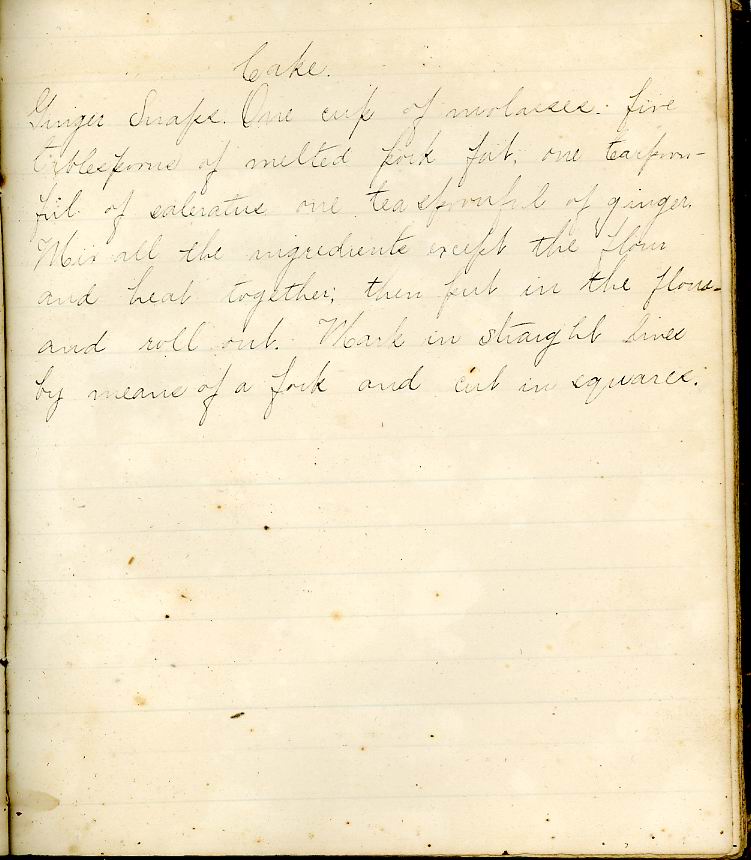 Cake.
Ginger Snaps. One cup of molasses. five
tablespoons of melted pork fat, one teaspoon-
ful of saleratus one teaspoonful of ginger.
Mix all the ingredients except the flour
and heat together; then put in the flour
and roll out. Mark in straight lines
by means of a fork and cut in squares.